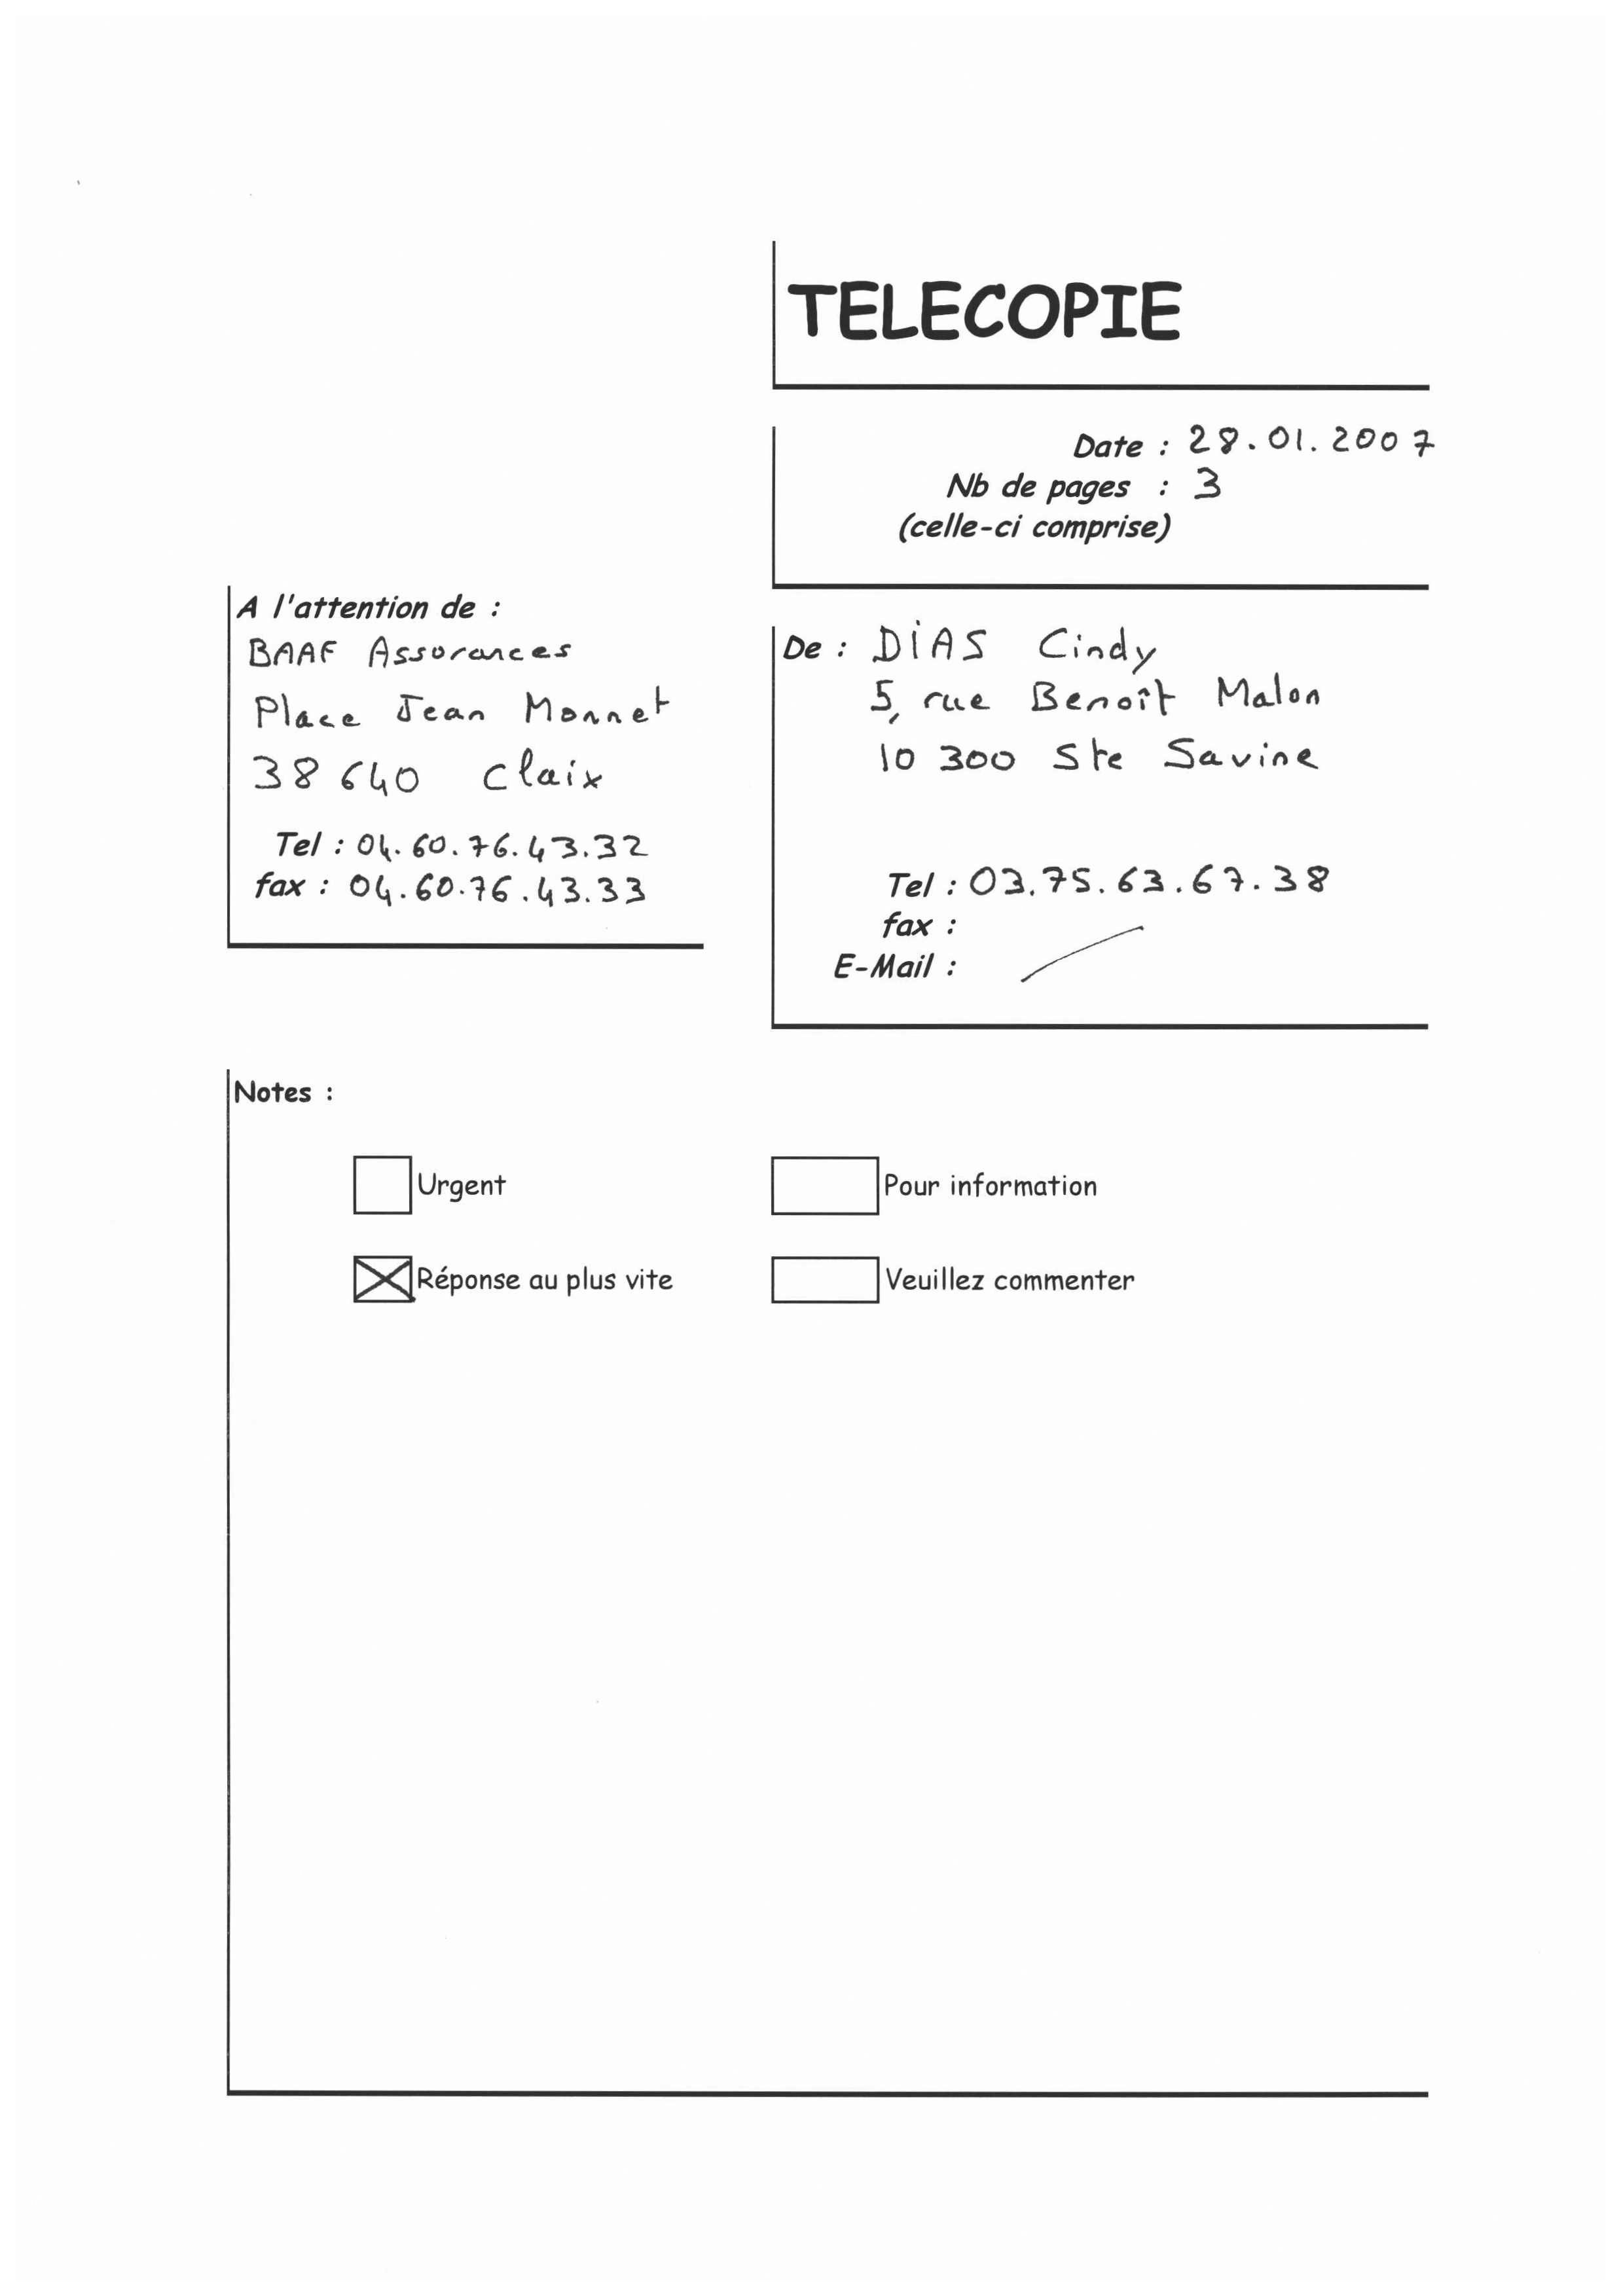 TELECOPIE
Date : 28.01.2007
Nb de pages : 3
(celle-ci comprise)
A l'attention de :
BAAF Assurances
Place Jean Monnet
38 640 Claix
Tel : 04.60.76.43.32
fax : 04.60.76.43.33
De : DIAS Cindy
5, rue Benoît Malon
10 300 Ste Savine
Tel : 03.75.63.67.38
fax :
E-Mail :
Notes :
Urgent
Pour information
Réponse au plus vite
Veuillez commenter